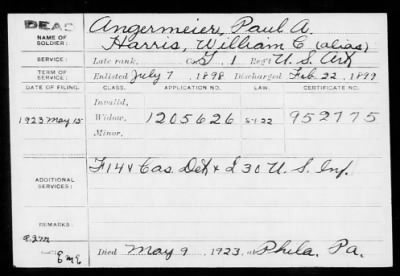 DEAD
NAME OF SOLDIER: Angermeier, Paul A.
Harris, William C (alias)
SERVICE: Late rank, Co. G, 1 Reg't U. S. Art
TERM OF SERVICE: Enlisted July 7, 1898 Discharged Feb. 22, 1899
DATE OF FILING. CLASS. APPLICATION NO. CERTIFICATE NO.
Invalid,
1923 May 15 Widow, 1205626 952775
Minor,
ADDITIONAL SERVICES: F 14 & Cas. Det & L 30 U. S. Inf.
REMARKS:
Died May 9, 1923, at Phila. Pa.